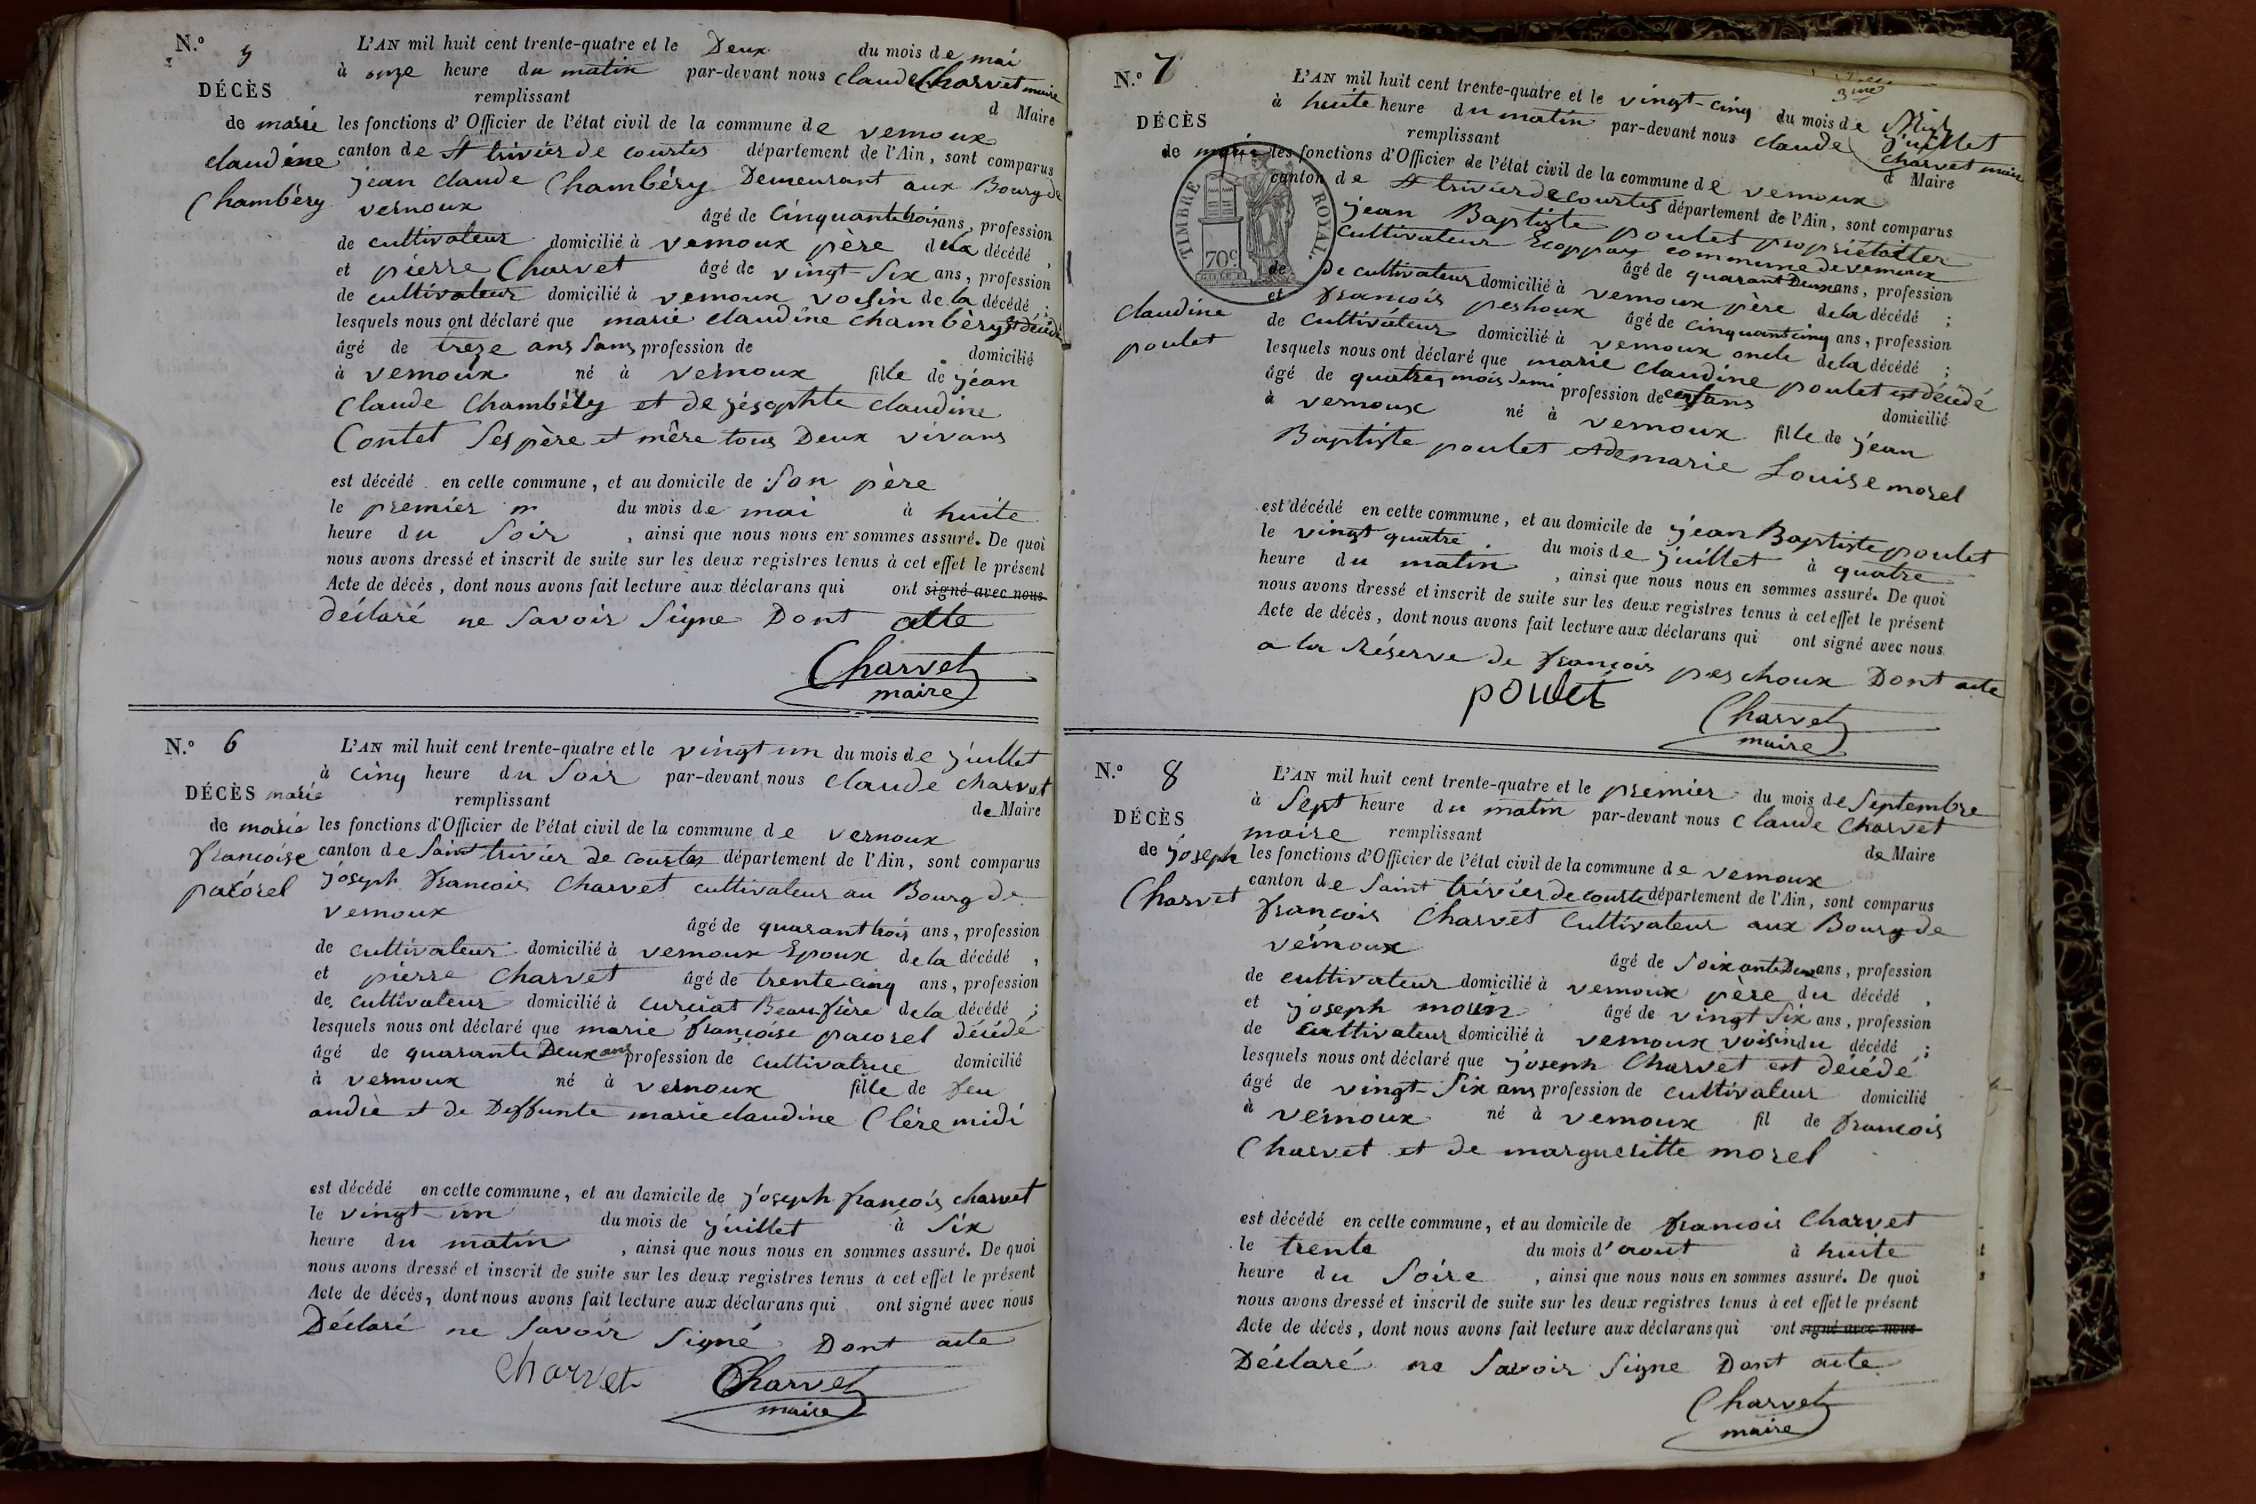 N.° 5
L'AN mil huit cent trente-quatre et le Deux du mois de mai
à onze heure du matin par-devant nous Claude Charvet maire
remplissant d Maire
DÉCÈS
de marie
claudine
Chambéry
les fonctions d'Officier de l'état civil de la commune de vernoux
canton de St trivier de courtes département de l'Ain, sont comparus
jean claude Chambéry Demeurant aux Bourg de
vernoux âgé de Cinquantetrois ans, profession
de cultivateur domicilié à vernoux père dela décédé,
et pierre Charvet âgé de vingt-Six ans, profession
de cultivateur domicilié à vernoux voisin de la décédé;
lesquels nous ont déclaré que marie claudine Chambéry est décédé
âgé de treze ans Sans profession de domicilié
à vernoux né à vernoux fille de jean
Claude Chambéry et de jésophte claudine
Contet Ses père et mère tous Deux vivans
est décédé en cette commune, et au domicile de Son père
le premier du mois de mai à huite
heure du Soir, ainsi que nous nous en sommes assuré. De quoi
nous avons dressé et inscrit de suite sur les deux registres tenus à cet effet le présent
Acte de décès, dont nous avons fait lecture aux déclarans qui ont signé avec nous
déclaré ne Savoir Signe Dont atte
Charvet
maire
N.° 6
L'AN mil huit cent trente-quatre et le vingt un du mois de juillet
à cinq heure du Soir par-devant nous Claude Charvet
remplissant de Maire
DÉCÈS marie
de marie
françoise
pacorel
les fonctions d'Officier de l'état civil de la commune de vernoux
canton de Saint trivier de courtes département de l'Ain, sont comparus
joseph francois Charvet cultivateur au Bourg de
vernoux âgé de quarant trois ans, profession
de cultivateur domicilié à vernoux Epoux dela décédé,
et pierre Charvet âgé de trente cinq ans, profession
de cultivateur domicilié à curciat Beaufrère dela décédé;
lesquels nous ont déclaré que marie françoise pacorel décédé
âgé de quarante Deux ans profession de cultivatrice domicilié
à vernoux né à vernoux fille de feu
andré et de Deffunte marie claudine Clére midi
est décédé en cette commune, et au domicile de joseph françois charvet
le vingt-un du mois de juillet à Six
heure du matin, ainsi que nous nous en sommes assuré. De quoi
nous avons dressé et inscrit de suite sur les deux registres tenus à cet effet le présent
Acte de décès, dont nous avons fait lecture aux déclarans qui ont signé avec nous
Déclaré ne Savoir Signé Dont acte
Charvet Charvet
maire
N.° 7
L'AN mil huit cent trente-quatre et le vingt-cinq du mois de juillet
à huite heure du matin par-devant nous claude Charvet maire
remplissant d Maire
DÉCÈS
de marie
claudine
poulet
TIMBRE ROYAL.
70c
les fonctions d'Officier de l'état civil de la commune de vernoux
canton de St trivier de courtes département de l'Ain, sont comparus
jean Baptiste poulet propriétaitter
cultivateur Ecoppay commune de vernoux
âgé de quarant Deux ans, profession
de De cultivateur domicilié à vernoux père dela décédé;
et françois peshoux âgé de cinquantcinq ans, profession
de cultivateur domicilié à vernoux oncle dela décédé;
lesquels nous ont déclaré que marie claudine poulet est décédé
âgé de quatres mois demi profession de enfans domicilié
à vernoux né à vernoux fille de jean
Baptiste poulet et de marie Louise morel
est décédé en cette commune, et au domicile de jean Baptiste poulet
le vingt quatre du mois de juillet à quatre
heure du matin, ainsi que nous nous en sommes assuré. De quoi
nous avons dressé et inscrit de suite sur les deux registres tenus à cet effet le présent
Acte de décès, dont nous avons fait lecture aux déclarans qui ont signé avec nous
a la réserve de françois peschoux Dont acte
poulet Charvet
maire
N.° 8
L'AN mil huit cent trente-quatre et le premier du mois de Septembre
à Sept heure du matin par-devant nous Claude Charvet
maire remplissant de Maire
DÉCÈS
de joseph
Charvet
les fonctions d'Officier de l'état civil de la commune de vernoux
canton de Saint trivier de courte département de l'Ain, sont comparus
françois Charvet Cultivateur aux Bourg de
vernoux âgé de Soixante Deux ans, profession
de cultivateur domicilié à vernoux père du décédé,
et joseph mouin âgé de vingt Six ans, profession
de cultivateur domicilié à vernoux voisin du décédé;
lesquels nous ont déclaré que joseph Charvet est décédé
âgé de vingt-Six ans profession de cultivateur domicilié
à vernoux né à vernoux fil de francois
Charvet et de margueritte morel
est décédé en cette commune, et au domicile de francois Charvet
le trente du mois d'aout à huite
heure du Soire, ainsi que nous nous en sommes assuré. De quoi
nous avons dressé et inscrit de suite sur les deux registres tenus à cet effet le présent
Acte de décès, dont nous avons fait lecture aux déclarans qui ont signé avec nous
Déclaré ne Savoir Signe Dont acte
Charvet
maire